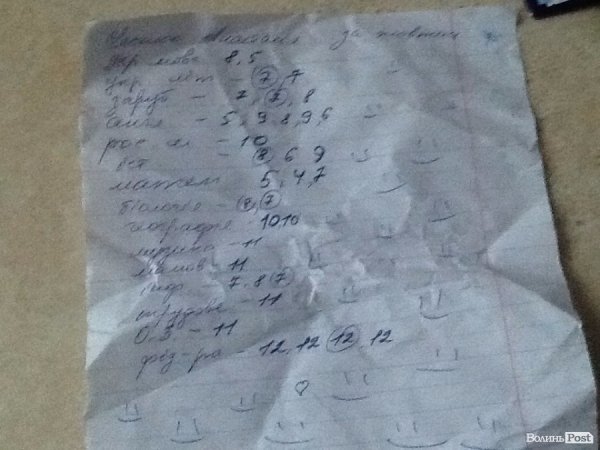 за жовтень
укр мова 8, 5
укр літ - 7, 7
заруб - 7, 7, 8
англ - 5, 9 8, 9, 6
рос м - 10
іст - 8, 6 9
матем 5, 4, 7
біологія - 8, 7
географія - 10 10
музика - 11
11
інф 7, 8 7
трудове - 11
О.З - 11
фіз-ра - 12, 12 12, 12
ВолиньPost